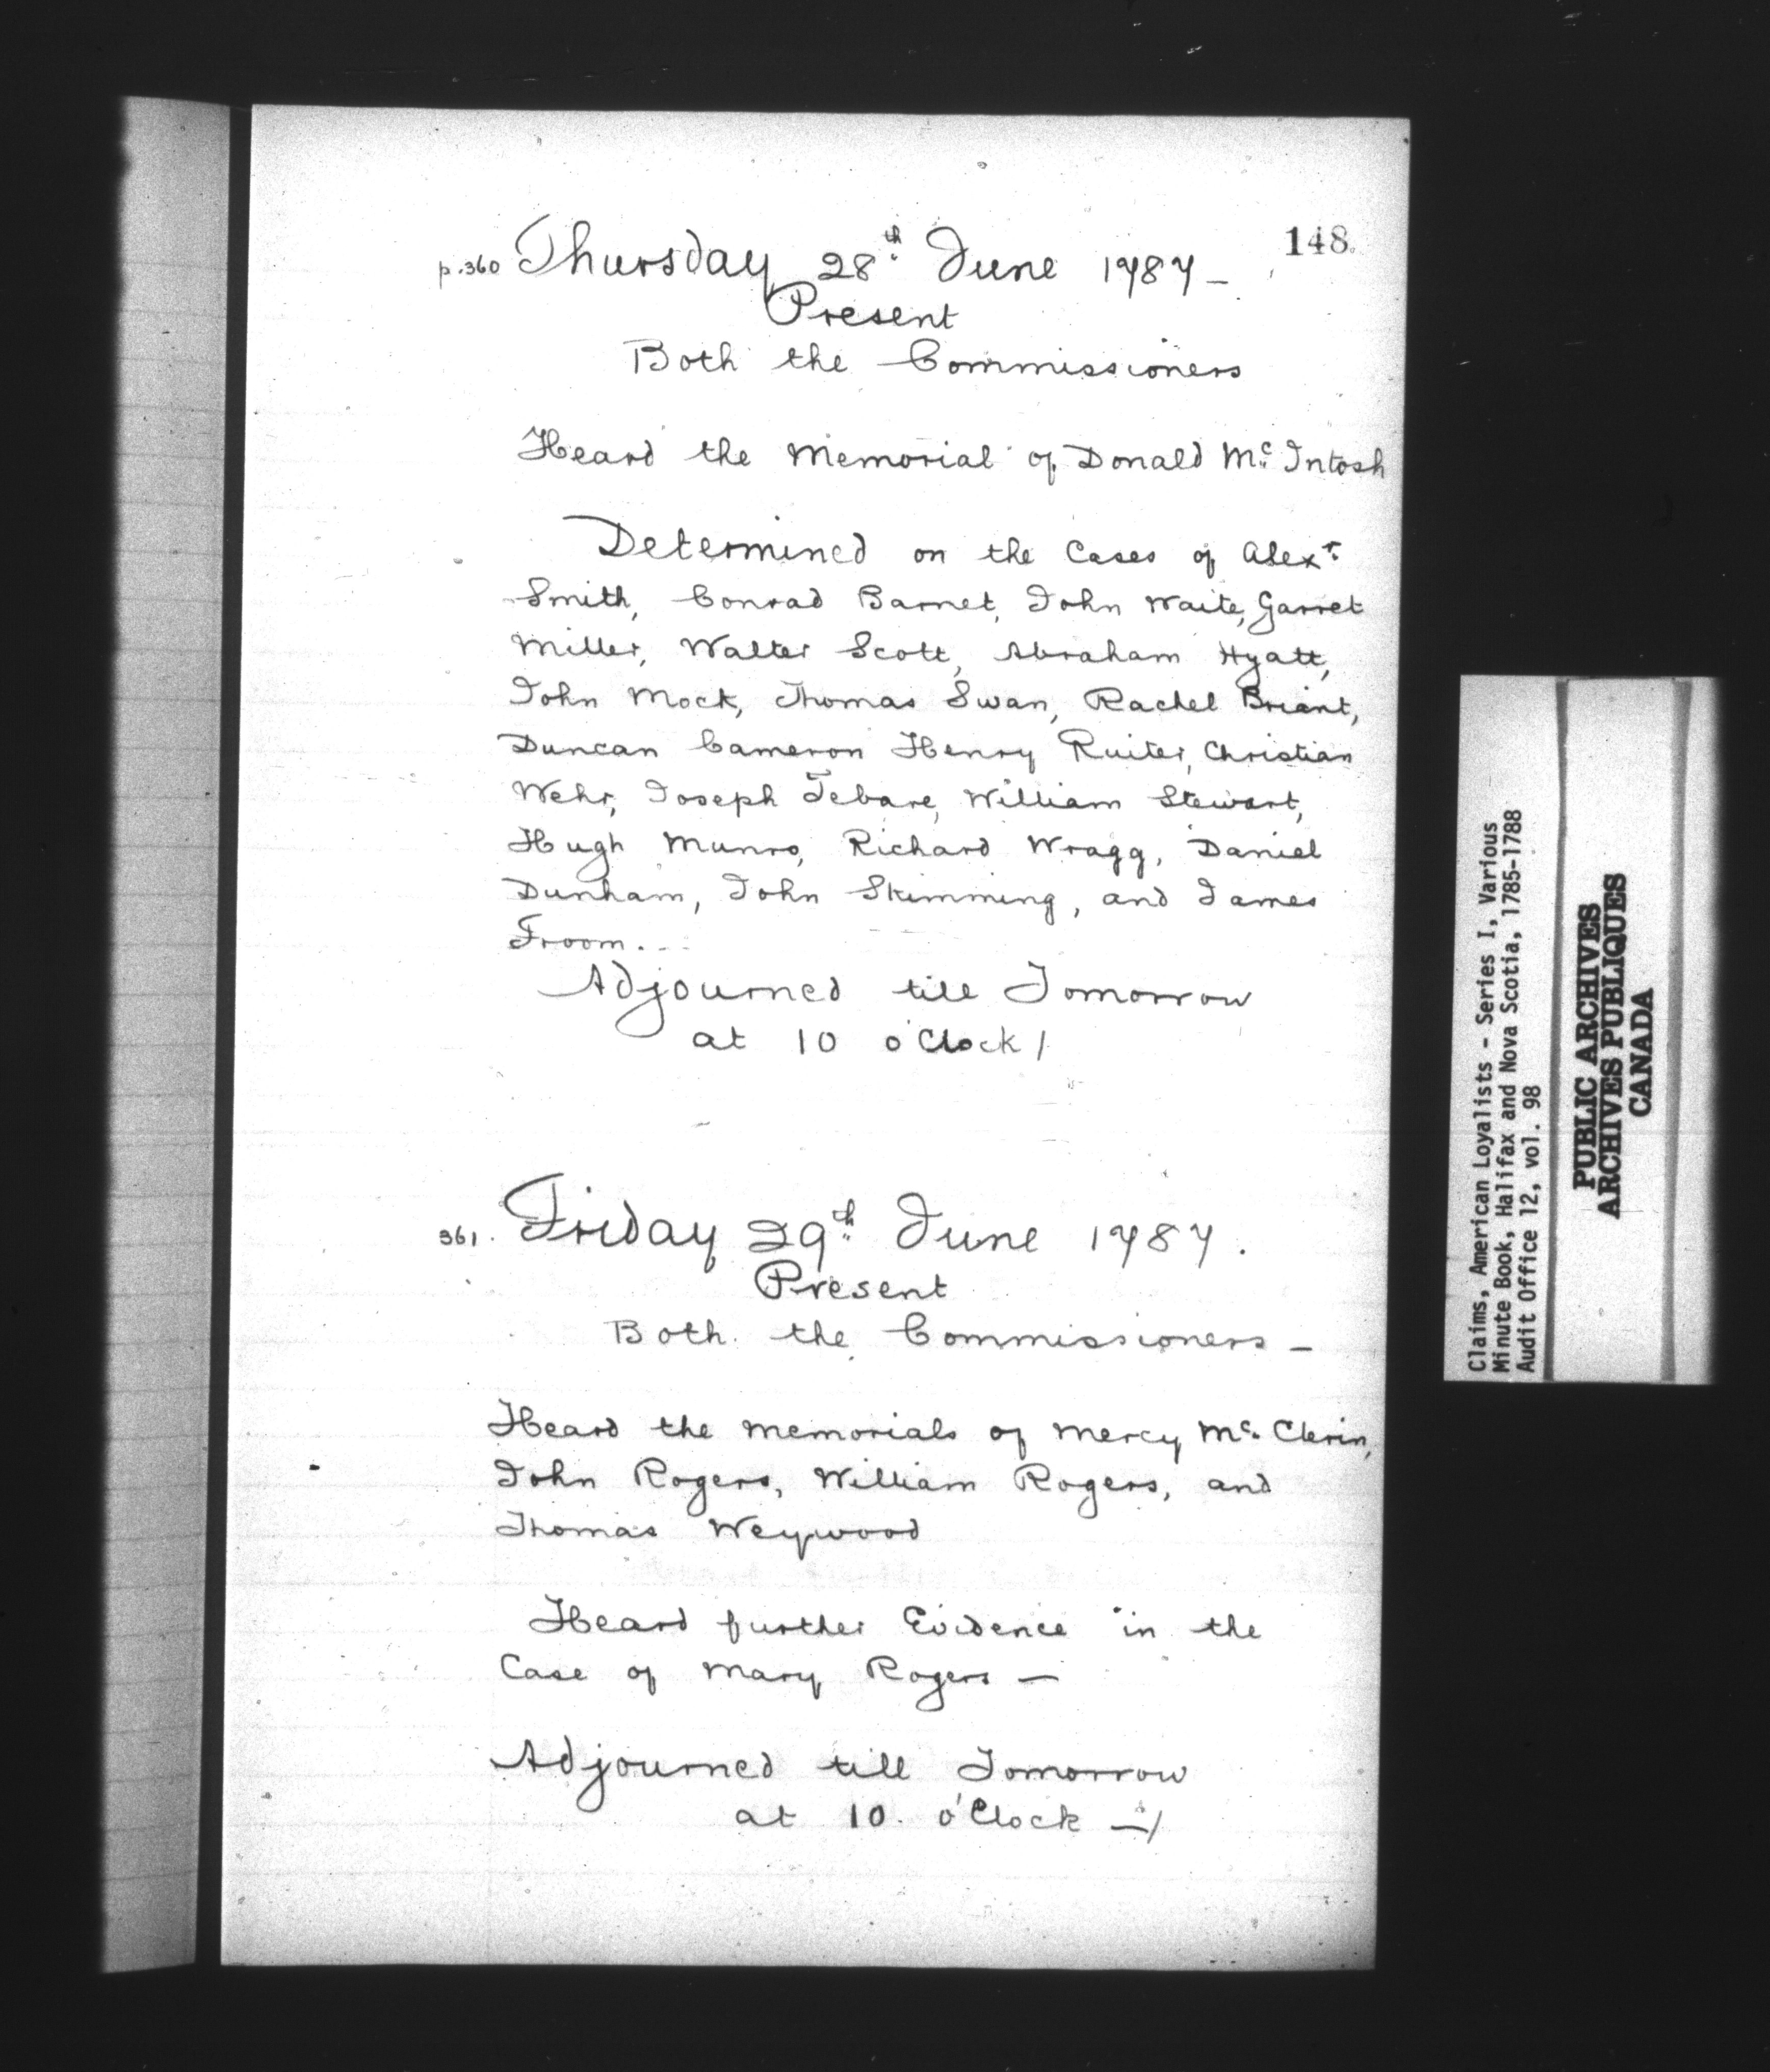 148.
p.360 Thursday 28th June 1787 –
Present
Both the Commissioners
Heard the Memorial of Donald Mc Intosh
Determined on the Cases of Alexr
Smith, Conrad Barnet, John Waite, Garret
Miller, Walter Scott, Abraham Hyatt,
John Mock, Thomas Swan, Rachel Briant,
Duncan Cameron Henry Ruiter, Christian
Wehr, Joseph Tebare, William Stewart,
Hugh Munro, Richard Wragg, Daniel
Dunham, John Skimming, and James
Froom. --
Adjourned till Tomorrow
at 10 o'Clock /
361. Friday 29th June 1787.
Present
Both the Commissioners –
Heard the Memorials of Mercy Mc. Clerin,
John Rogers, William Rogers, and
Thomas Weywood
Heard further Evidence in the
Case of Mary Rogers —
Adjourned till Tomorrow
at 10. o'Clock —/
Claims, American Loyalists - Series I, Various
Minute Book, Halifax and Nova Scotia, 1785-1788
Audit Office 12, vol. 98
PUBLIC ARCHIVES
ARCHIVES PUBLIQUES
CANADA